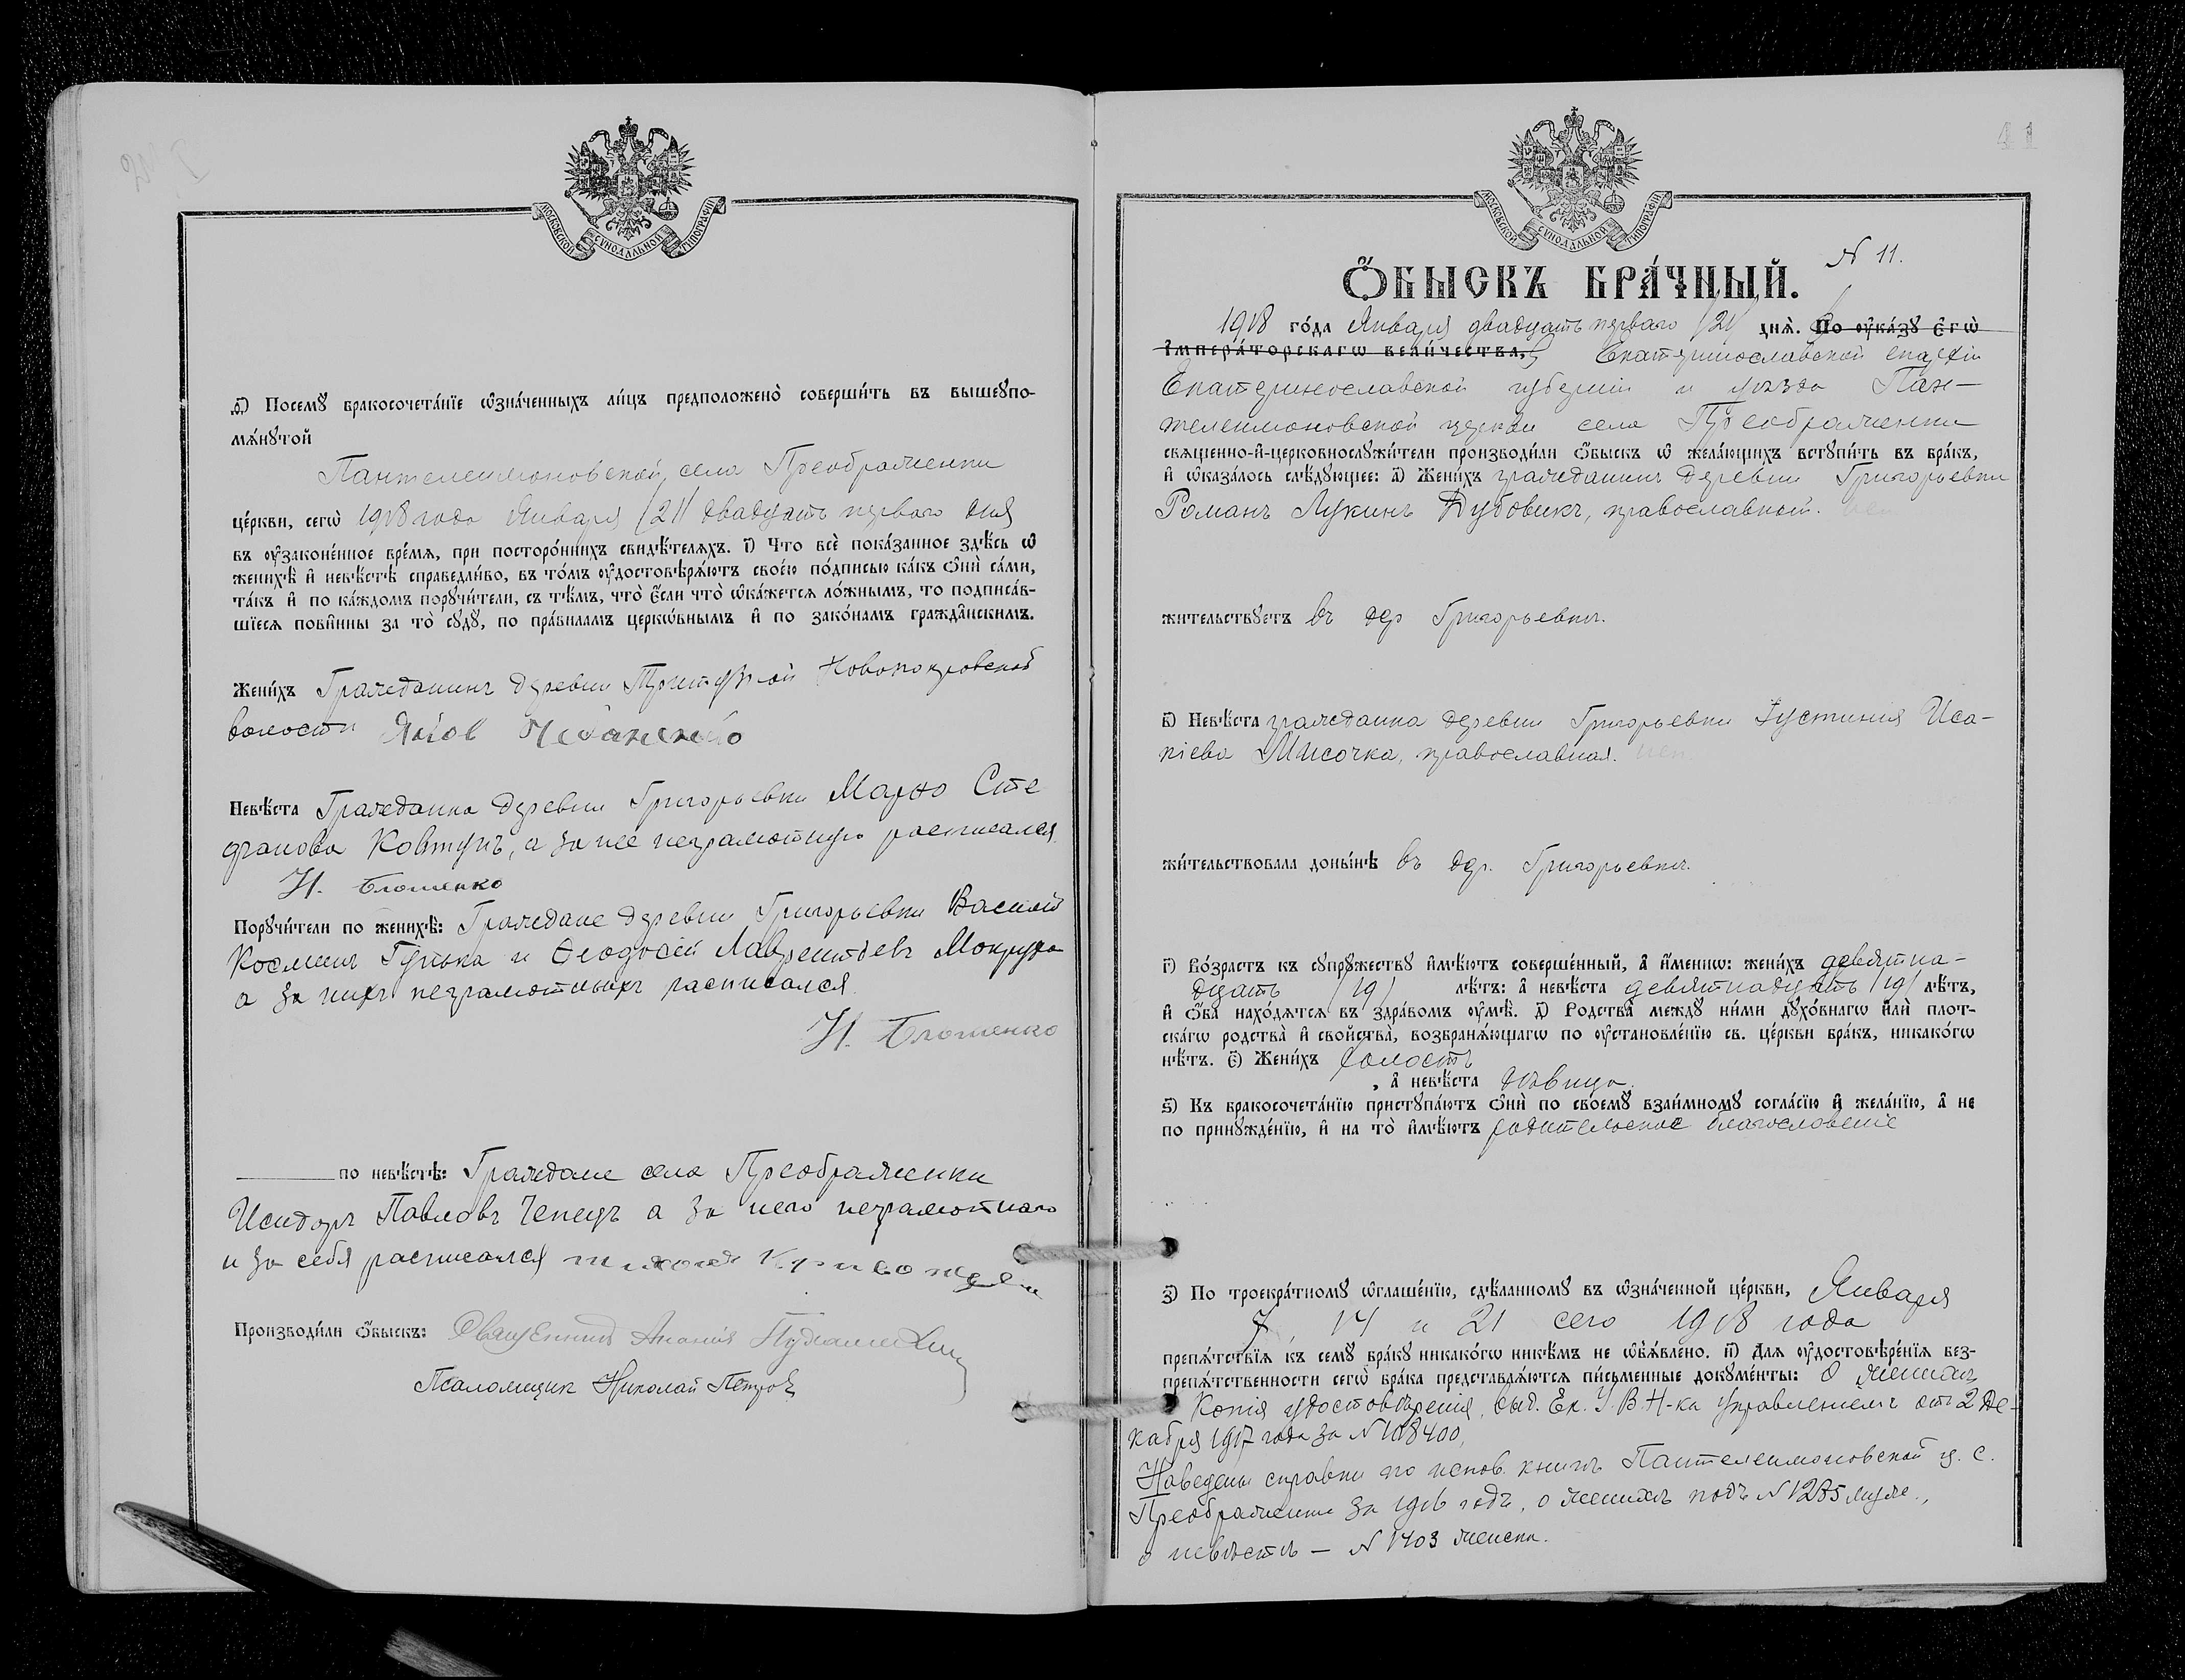 МОСКОВСКОЙ СУНОДАЛЬНОЙ ТИПОГРАФІИ
ѳ҃) Посемꙋ̀ бракосочета́нїе ѡ҆зна́ченныхъ ли́цъ предположено̀ соверши́ть въ вышеꙋпо-
мѧ́нꙋтой
Пантелеимоновской, села Преображенки
це́ркви, сегѡ̀ 1918 года Января /21/ двадцать перваго дня
въ ᲂу҆законе́нное вре́мѧ, при посторо́ннихъ свидѣ́телѧхъ. і҃) Что̀ всѐ пока́занное здѣ́сь ѡ҆
женихѣ̀ и҆ невѣ́стѣ справедли́во, въ то́мъ ᲂу҆достовѣрѧ́ютъ свое́ю по́дписью ка́къ ѻ҆нѝ са́ми,
та́къ и҆ по ка́ждомъ порꙋчи́тели, съ тѣ́мъ, что̀ є҆́сли что̀ ѡ҆ка́жетсѧ ло́жнымъ, то подписа́в-
шїесѧ пови́нны за то̀ сꙋдꙋ̀, по пра́виламъ церко́внымъ и҆ по зако́намъ гражда́нскимъ.
Жени́хъ Гражданинъ деревни Новопокровской
волости Яков
Невѣ́ста Гражданка деревни Григорьевки Марѳо Сте
фанова Ковтунъ, а за нее неграмотную расписался
И. Блошенко
Порꙋчи́тели по женихѣ̀: Граждане деревни Григорьевки Василій
Косминъ и Ѳеодосій Лаврентіевъ Мокруха
а за нихъ неграмотныхъ расписался
И. Блошенко
по невѣ́стѣ: Граждане села Преображенки
Исидоръ Павловъ Чепецъ а за него неграмотнаго
и за себя расписался
Производи́ли ѻ҆́быскъ: Священникъ Ананія
Псаломщикъ Николай Петров
41
МОСКОВСКОЙ СУНОДАЛЬНОЙ ТИПОГРАФІИ
N 11.
Ѻ҆́БЫСКЪ БРА́ЧНЫЙ.
1918 го́да Января двадцать перваго /21/ днѧ̀. По ᲂу҆ка́зꙋ є҆гѡ̀
і҆мпера́торскагѡ вели́чества, Екатеринославской епархіи
Екатеринославской губерніи и уѣзда Пан-
телеимоновской церкви села Преображенки
свѧщенно-и҆-церковнослꙋжи́тели производи́ли ѻ҆́быскъ ѡ҆ жела́ющихъ встꙋпи́ть въ бра́къ,
и҆ ѡ҆каза́лось слѣ́дꙋющее: а҃) Жени́хъ гражданинъ деревни Григорьевки
Романъ Лукинъ Дубовикъ, православный.
жительствꙋетъ въ дер Григорьевкѣ.
в҃) Невѣ́ста гражданка деревни Григорьевки Іустинія Иса-
кіева Мисочка, православная.
жи́тельствовала доны́нѣ въ дер. Григорьевкѣ.
г҃) Во́зрастъ къ сꙋпрꙋжествꙋ и҆мѣ́ютъ соверше́нный, а҆ и҆́меннѡ: жени́хъ девятна-
дцать /19/ лѣ́тъ: а҆ невѣ́ста девятнадцать /19/ лѣ́тъ,
и҆ ѻ҆́ба нахо́дѧтсѧ въ здра́вомъ ᲂу҆мѣ̀. д҃) Родства̀ междꙋ ни́ми дꙋхо́внагѡ и҆лѝ плот-
ска́гѡ родства̀ и҆ сво́йства̀, возбранѧ́ющагѡ по ᲂу҆становле́нїю св. це́ркви бра́къ, никако́гѡ
нѣ́тъ. є҃) Жени́хъ холостъ
, а҆ невѣ́ста дѣвица
ѕ҃) Къ бракосочета́нїю пристꙋпа́ютъ ѻ҆нѝ по своемꙋ̀ взаи́мномꙋ согла́сїю и҆ жела́нїю, а҆ не
по принꙋжде́нїю, и҆ на то̀ и҆мѣ́ютъ родительское благословеніе
з҃) По троекра́тномꙋ ѡ҆глаше́нїю, сдѣ́ланномꙋ въ ѡ҆зна́ченной це́ркви, Января
7, 14 и 21 сего 1918 года
препѧ́тствїѧ къ семꙋ̀ бра́кꙋ никако́гѡ никѣ́мъ не ѡ҆бъѧ́влено. и҃) Длѧ ᲂу҆достовѣре́нїѧ без-
препѧ́тственности сегѡ̀ бра́ка представлѧ́ютсѧ пи́сьменные докꙋме́нты: О женихѣ
Копія удостовѣренія, выд. Ек. У. В. Н-ка Управленіемъ отъ 2 Де-
кабря 1917 года за N 108400,
Наведены справки по испов. книгѣ Пантелеимоновской ц. с.
Преображенки за 1916 годъ, о женихѣ подъ N 1285 мужс.,
о невѣстѣ — N 1403 женска.